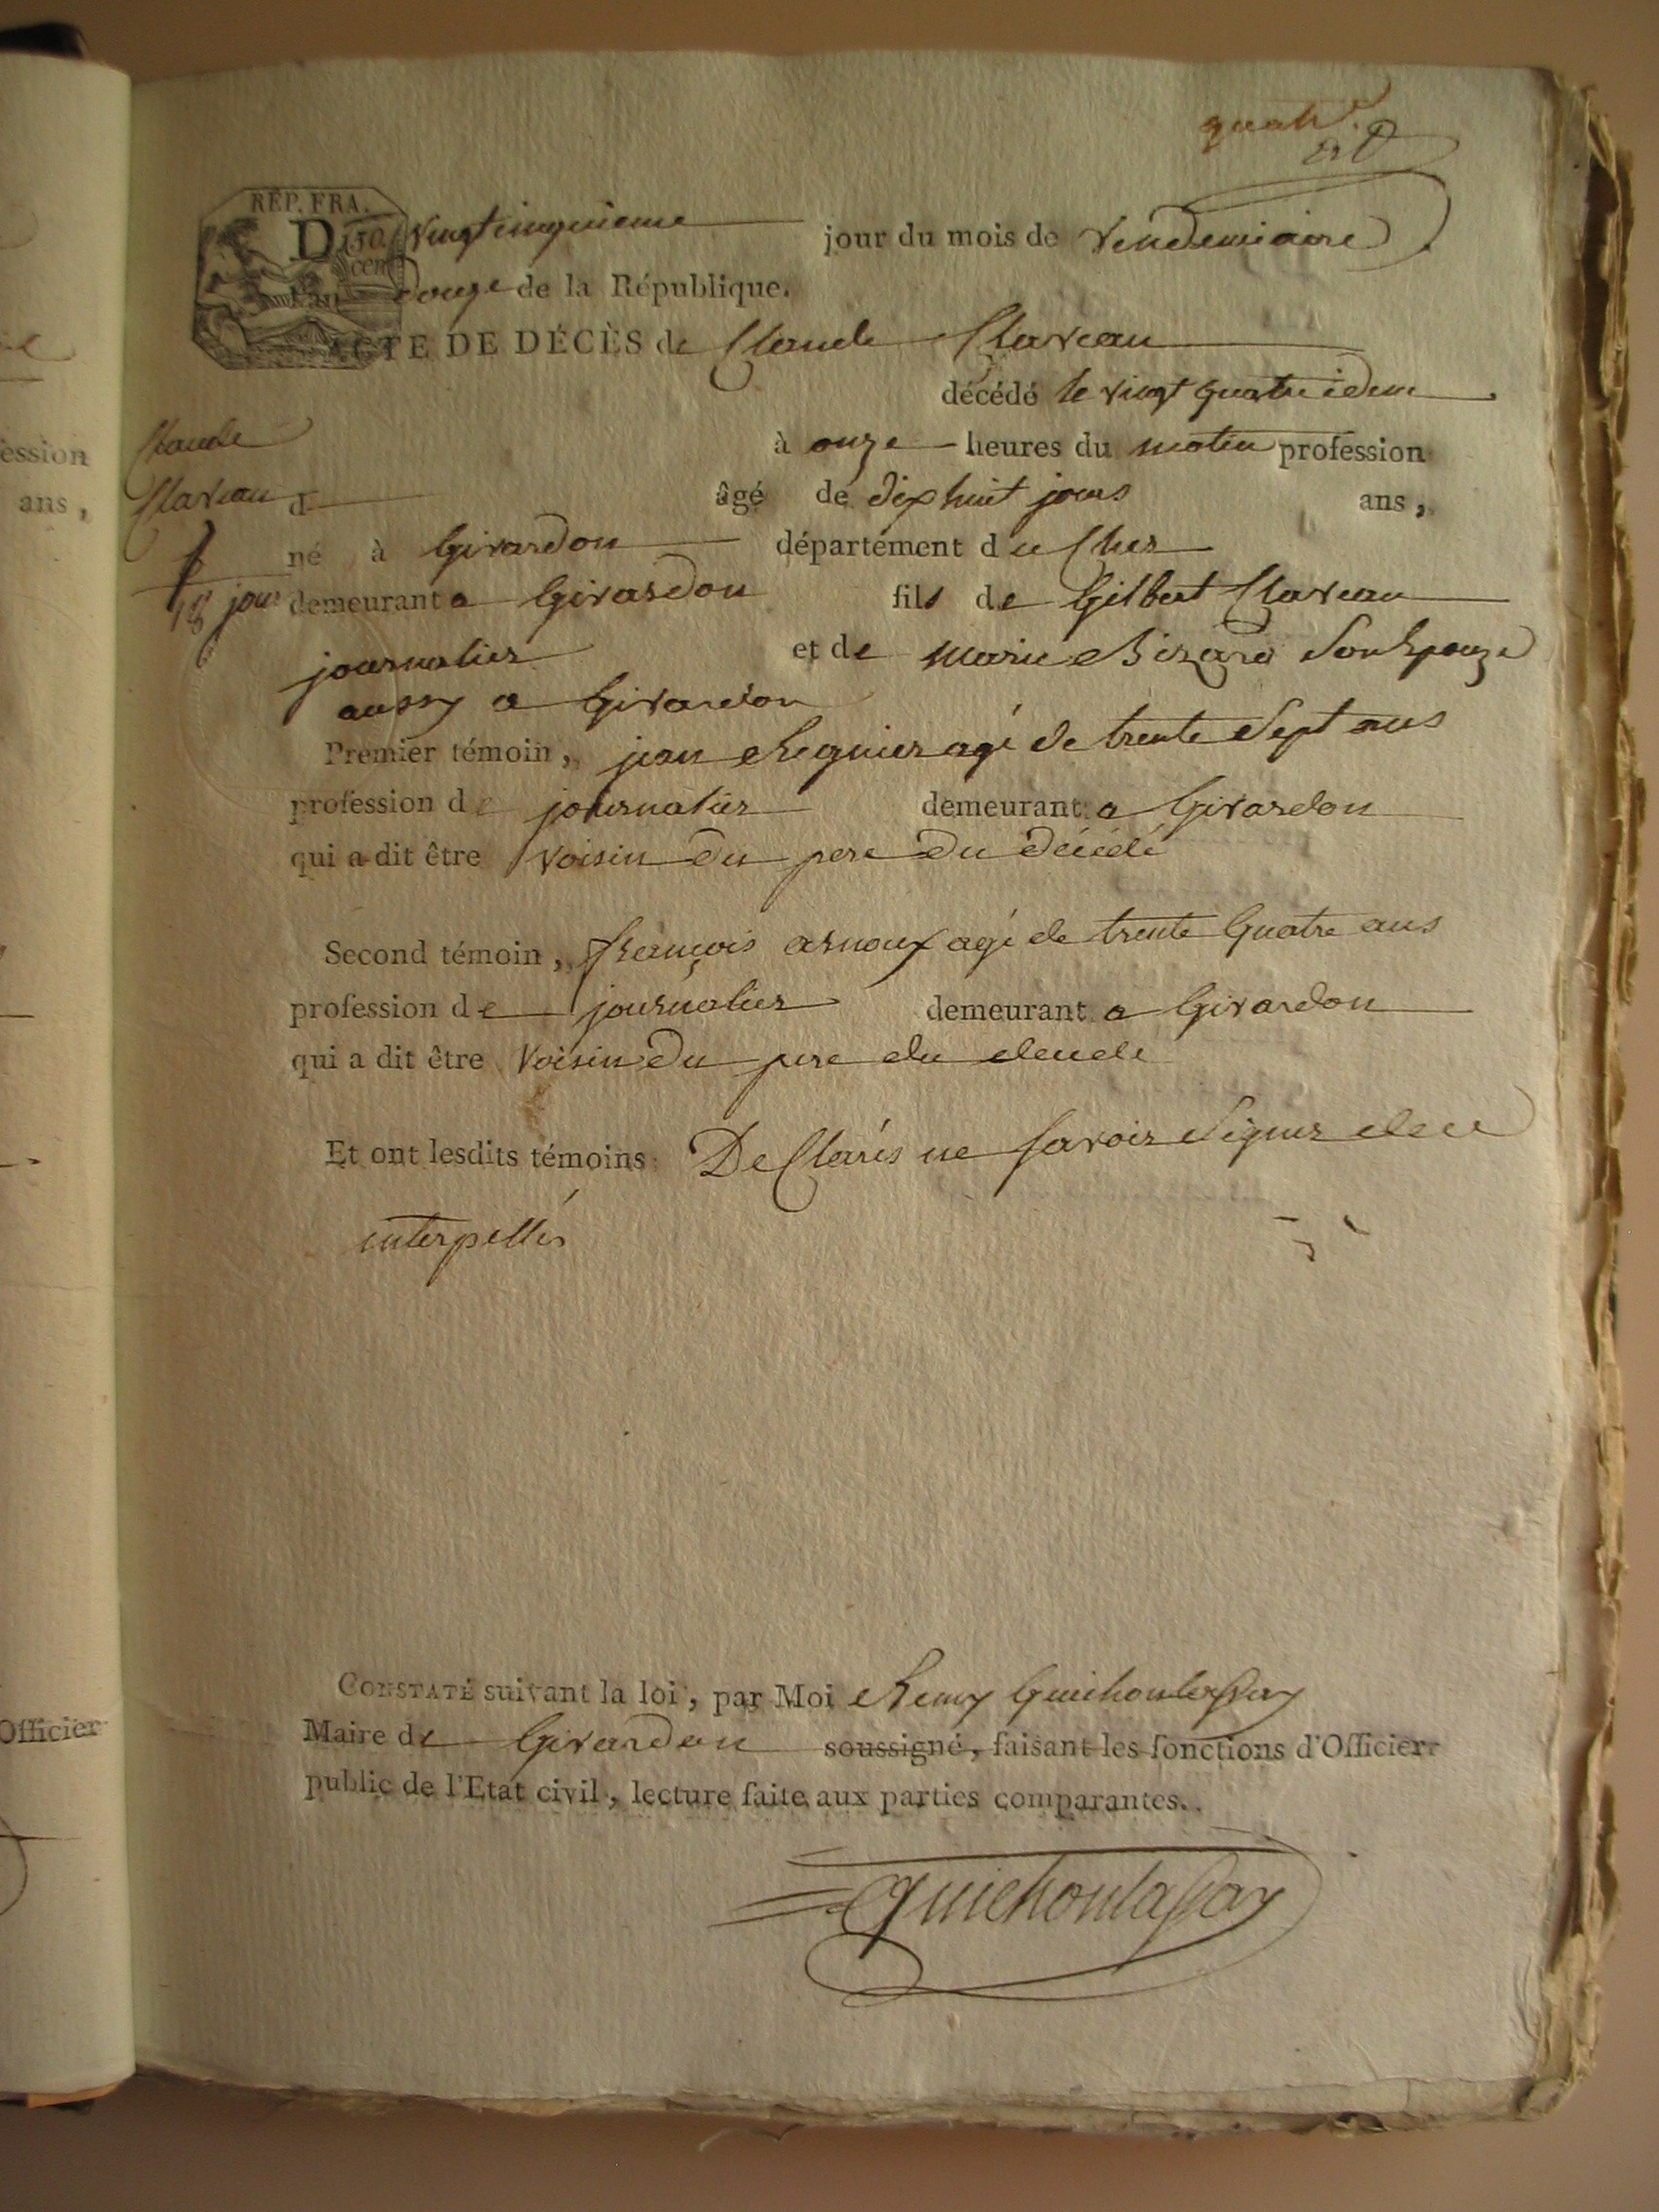 quatre
RÉP. FRA.
Du vingt cinquieme jour du mois de Vendemiaire
douze de la République.
ACTE DE DÉCÈS de Claude Claveau
décédé le vingt quatre idem
Claude
à onze heures du matin profession
Claveau d âgé de dix huit jours ans,
né à Givardon département du Cher
18 jours demeurant a Givardon fils de Gilbert Claveau
journalier et de Marie Bizard Son Epouze
aussy a Givardon
Premier témoin, jean Regnier agé de trente Sept ans
profession de journalier demeurant a Givardon
qui a dit être Voisin du pere du décédé
Second témoin, françois arnoux agé de trente Quatre ans
profession de journalier demeurant a Givardon
qui a dit être Voisin du pere du decedé
Et ont lesdits témoins DeClarés ne Savoir Signer de ce
interpellés
CONSTATÉ suivant la loi, par Moi Remy Guichoulassay
Maire de Givardon soussigné, faisant les fonctions d'Officier
public de l'Etat civil, lecture faite aux parties comparantes.
Guichoulassay
ession
ans,
Officier